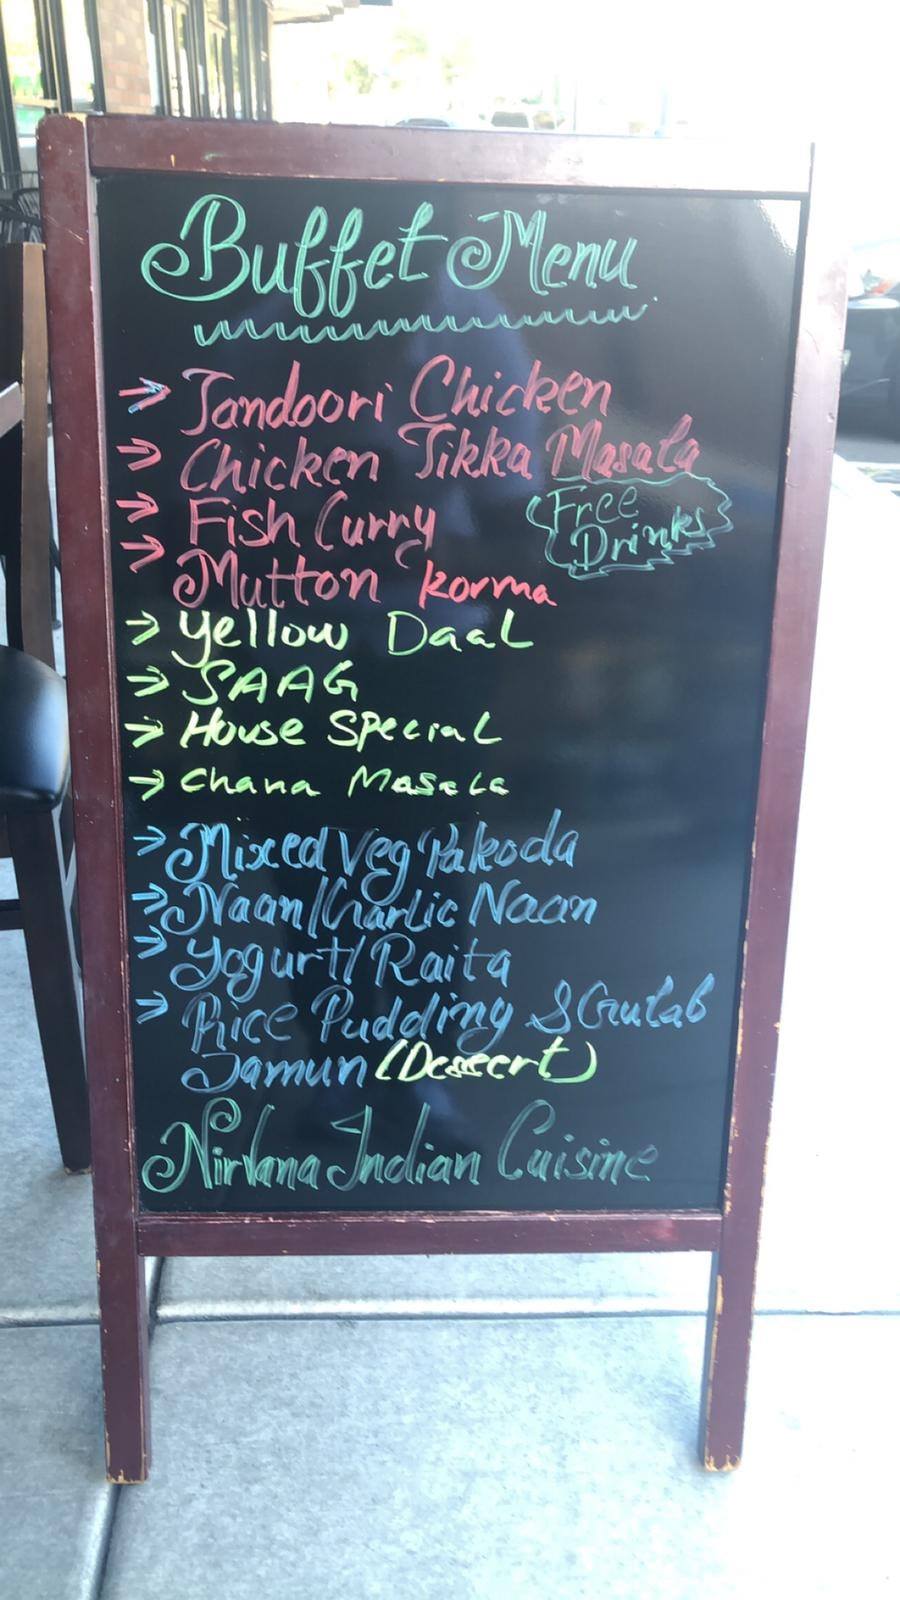 Buffet Menu
→ Tandoori Chicken
→ Chicken Tikka Masala
→ Fish Curry
Free
Drinks
→ Mutton korma
→ Yellow Daal
→ SAAG
→ House Special
→ Chana Masala
→ Mixed Veg Pakoda
→ Naan/Garlic Naan
→ Yogurt/Raita
→ Rice Pudding & Gulab
Jamun (Dessert)
Nirvana Indian Cuisine